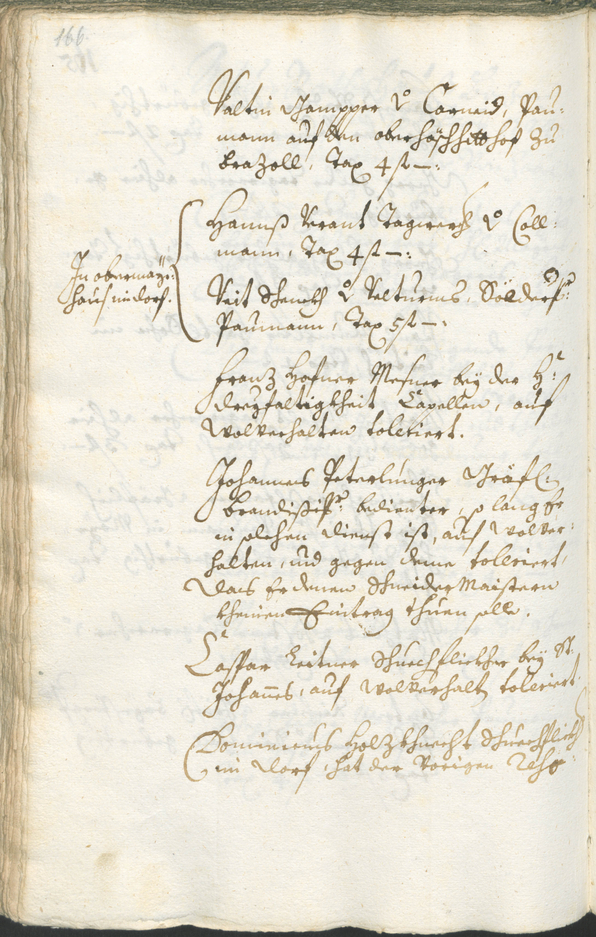 166.
Valtin Gampper v Carneid, Pau-
mann auf den
brazoll, Tax 4 f —:
Hannß Verant Tagwerch v Coll-
mann, Tax 4 f —:
In obermayr
haus im dorf.
Veit v Velturns, Söldner
Paumann, Tax 5 f —:
Franz Hofner Messner bey der H:
dreyfaltigkheit Capellen, auf
wolverhalten tolleriert.
Johannes Peterlunger Gräfl:
brandißisr: bedienter, so lang Er
in solchen dienst ist, auf wolver-
halten, und gegen deme tolleriert,
das Er denen Schneider Maistern
kheinen Eintrag thuen solle.
Caspar Leitner Schuechflickher bey St:
Johannes, auf wolverhalten tolleriert
Dominicus Holzkhnecht Schuechflickh
im Dorf, hat der Vorigen